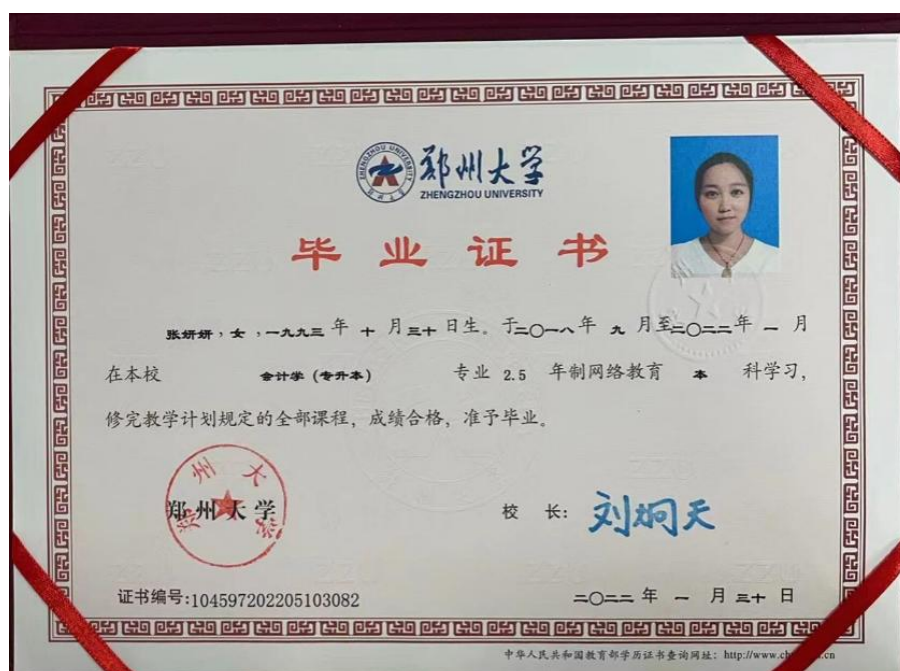 郑州大学
ZHENGZHOU UNIVERSITY
毕业证书
张妍妍，女，一九九三 年 十 月 三十 日生。于二〇一八年 九 月至二〇二二年 一 月
在本校 会计学（专升本） 专业 2.5 年制网络教育 本 科学习，
修完教学计划规定的全部课程，成绩合格，准予毕业。
郑州大学
郑州大学
校 长：刘炯天
证书编号:104597202205103082
二〇二二 年 一 月 三十 日
中华人民共和国教育部学历证书查询网址：http://www.ch